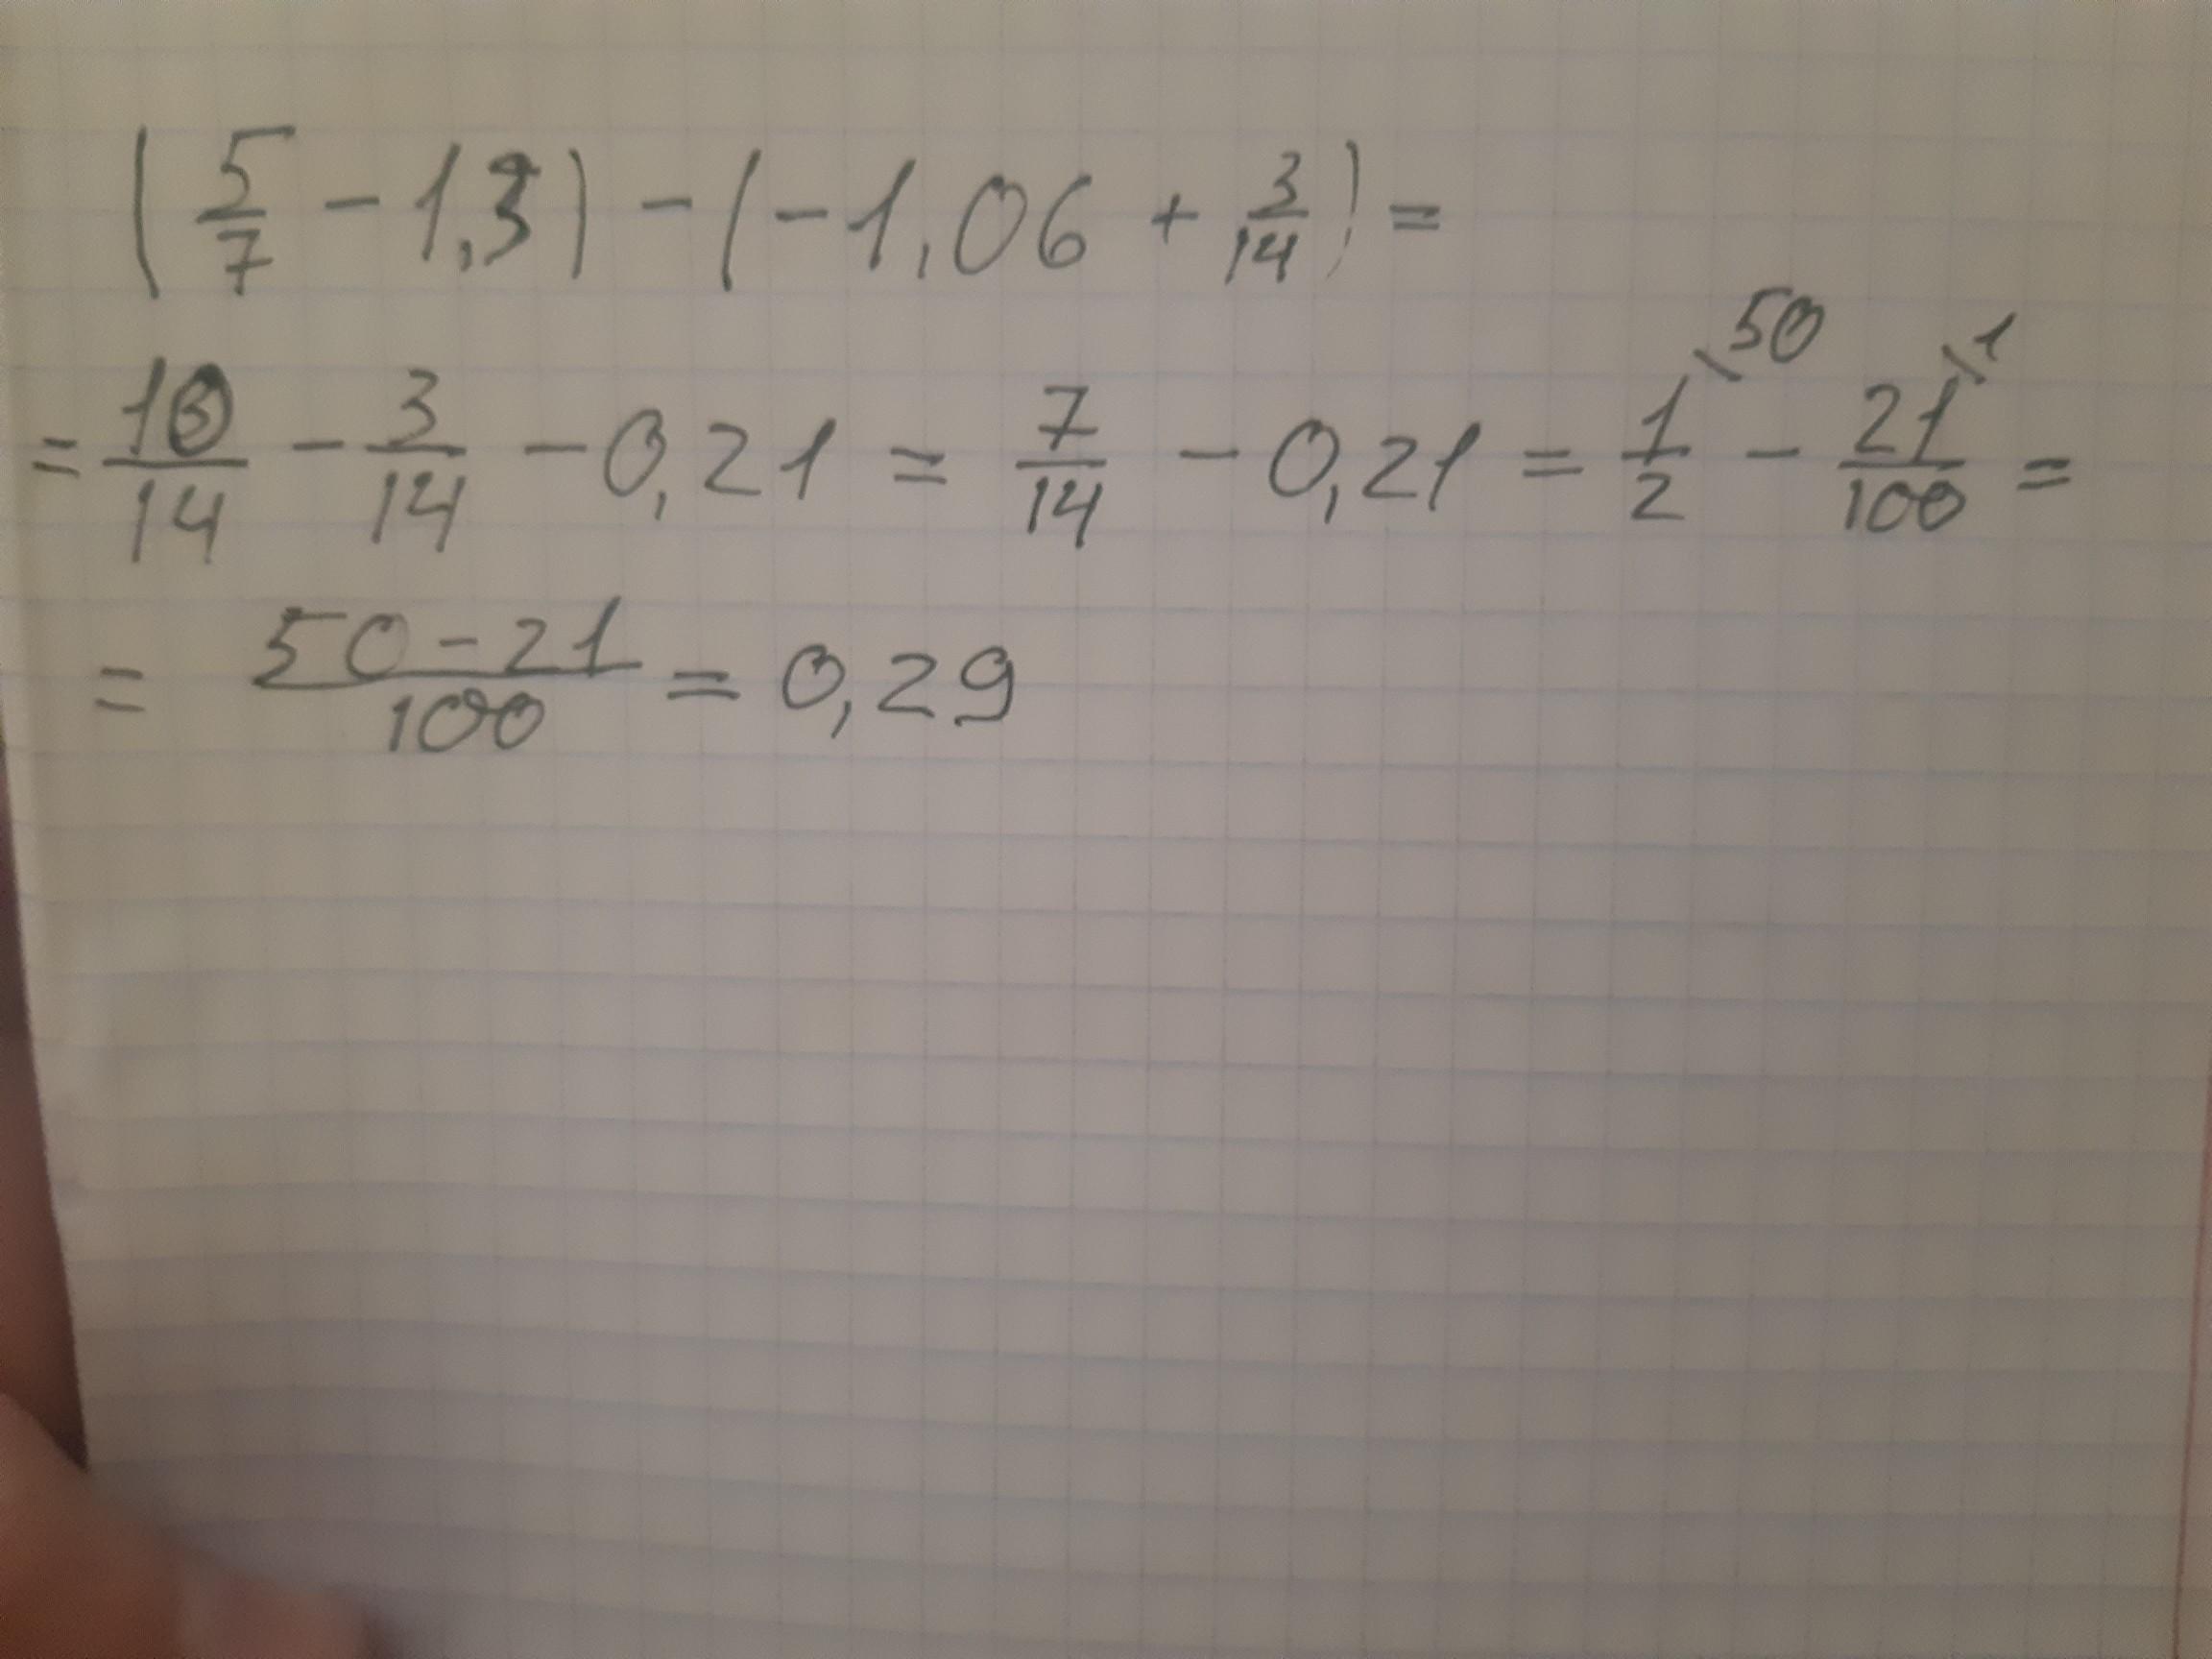 (5/7 - 1,3) - (-1,06 + 3/14) =
= 10/14 - 3/14 - 0,21 = 7/14 - 0,21 = 1/2 \50 - 21/100 \1 =
= 50-21/100 = 0,29